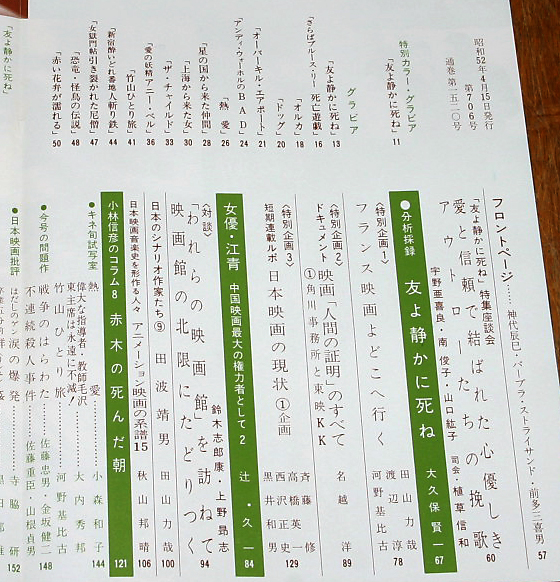 昭和52年4月15日発行
第706号
通巻第一五二〇号
特別カラー・グラビア
「友よ静かに死ね」 11
グラビア
「友よ静かに死ね」 13
「さらばブルース・リー 死亡遊戯」 16
「オルカ」 18
「ドッグ」 20
「オーバーキル・エアポート」 21
「アンディ・ウォーホルのBAD」 24
「熱 愛」 26
「星の国から来た仲間」 28
「上海から来た女」 30
「ザ・チャイルド」 33
「愛の妖精アニー・ベル」 36
「竹山ひとり旅」 41
「新宿酔いどれ番地人斬り鉄」 44
「女獄門帖引き裂かれた尼僧」 47
「恐竜・怪鳥の伝説」 48
「赤い花弁が濡れる」 50
「友よ静かに死ね」
フロントページ……神代辰巳・バーブラ・ストライサンド・前多三喜男 57
「友よ静かに死ね」特集座談会
愛と信頼で結ばれた心優しき
アウトローたちの挽歌 60
宇野亜喜良・南俊子・山口紘子 司会・植草信和
●分析採録 友よ静かに死ね 大久保賢一 67
〈特別企画1〉
フランス映画よどこへ行く 田山力哉 渡辺淳 河野基比古 78
〈特別企画2〉
ドキュメント 映画「人間の証明」のすべて
①角川事務所と東映KK 名越 洋 89
〈特別企画3〉
短期連載ルポ 日本映画の現状 ①企画 斉藤 修 高橋英一 西沢正史 黒井和男 129
女優・江青 中国映画最大の権力者として2 辻・久一 84
〈対談〉
「われらの映画館」を訪ねて
映画館の北限にたどりつく 鈴木志郎康・上野昂志 94
日本のシナリオ作家たち⑨ 田波靖男 田山力哉 100
日本映画音楽史を形作る人々 アニメーション映画の系譜15 秋山邦晴 106
小林信彦のコラム8 赤木の死んだ朝 121
●キネ旬試写室
熱 愛…………小森和子
偉大な指導者・教師毛沢
東主席は永遠に不滅!……大内秀邦
竹山ひとり旅……河野基比古 144
●今号の問題作
戦争のはらわた……佐藤忠男・金坂健二
不連続殺人事件……佐藤重臣・山根貞男 148
●日本映画批評
涙の爆発……寺脇 研 152